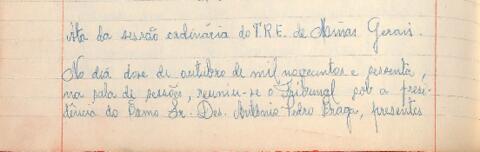 Ata da sessão ordinária do T.R.E. de Minas Gerais.
No dia doze de outubro de mil novecentos e sessenta,
na sala de sessões, reuniu-se o Tribunal sob a presi-
dência do Exmo Sr. Des. Antônio Pedro Braga, presentes